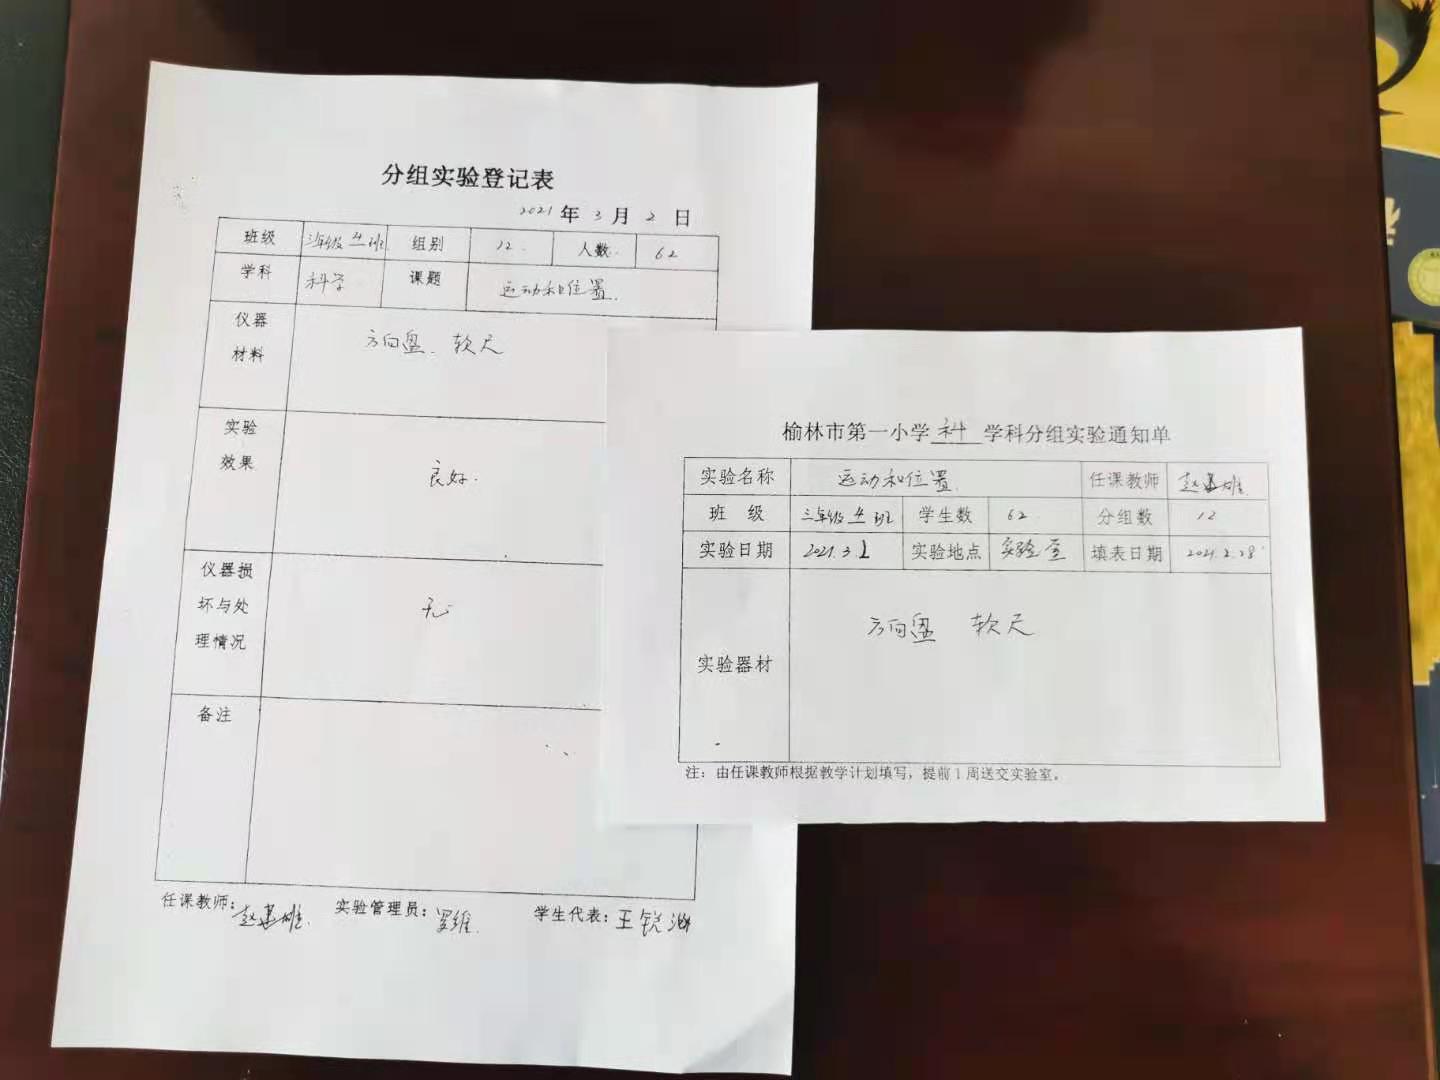 分组实验登记表
2021年3月2日
班级 三年级4班 组别 12. 人数. 62
学科 科学 课题 运动和位置.
仪器材料 方向盘、软尺
实验效果 良好.
仪器损坏与处理情况 无
备注
任课教师: 赵 雄. 实验管理员: 罗维. 学生代表: 王锐
榆林市第一小学 科 学科分组实验通知单
实验名称 运动和位置. 任课教师 赵 雄.
班 级 三年级4班 学生数 62 分组数 12
实验日期 2021.3.2 实验地点 实验室 填表日期 2021.2.28
实验器材 方向盘 软尺
注: 由任课教师根据教学计划填写, 提前1周送交实验室。